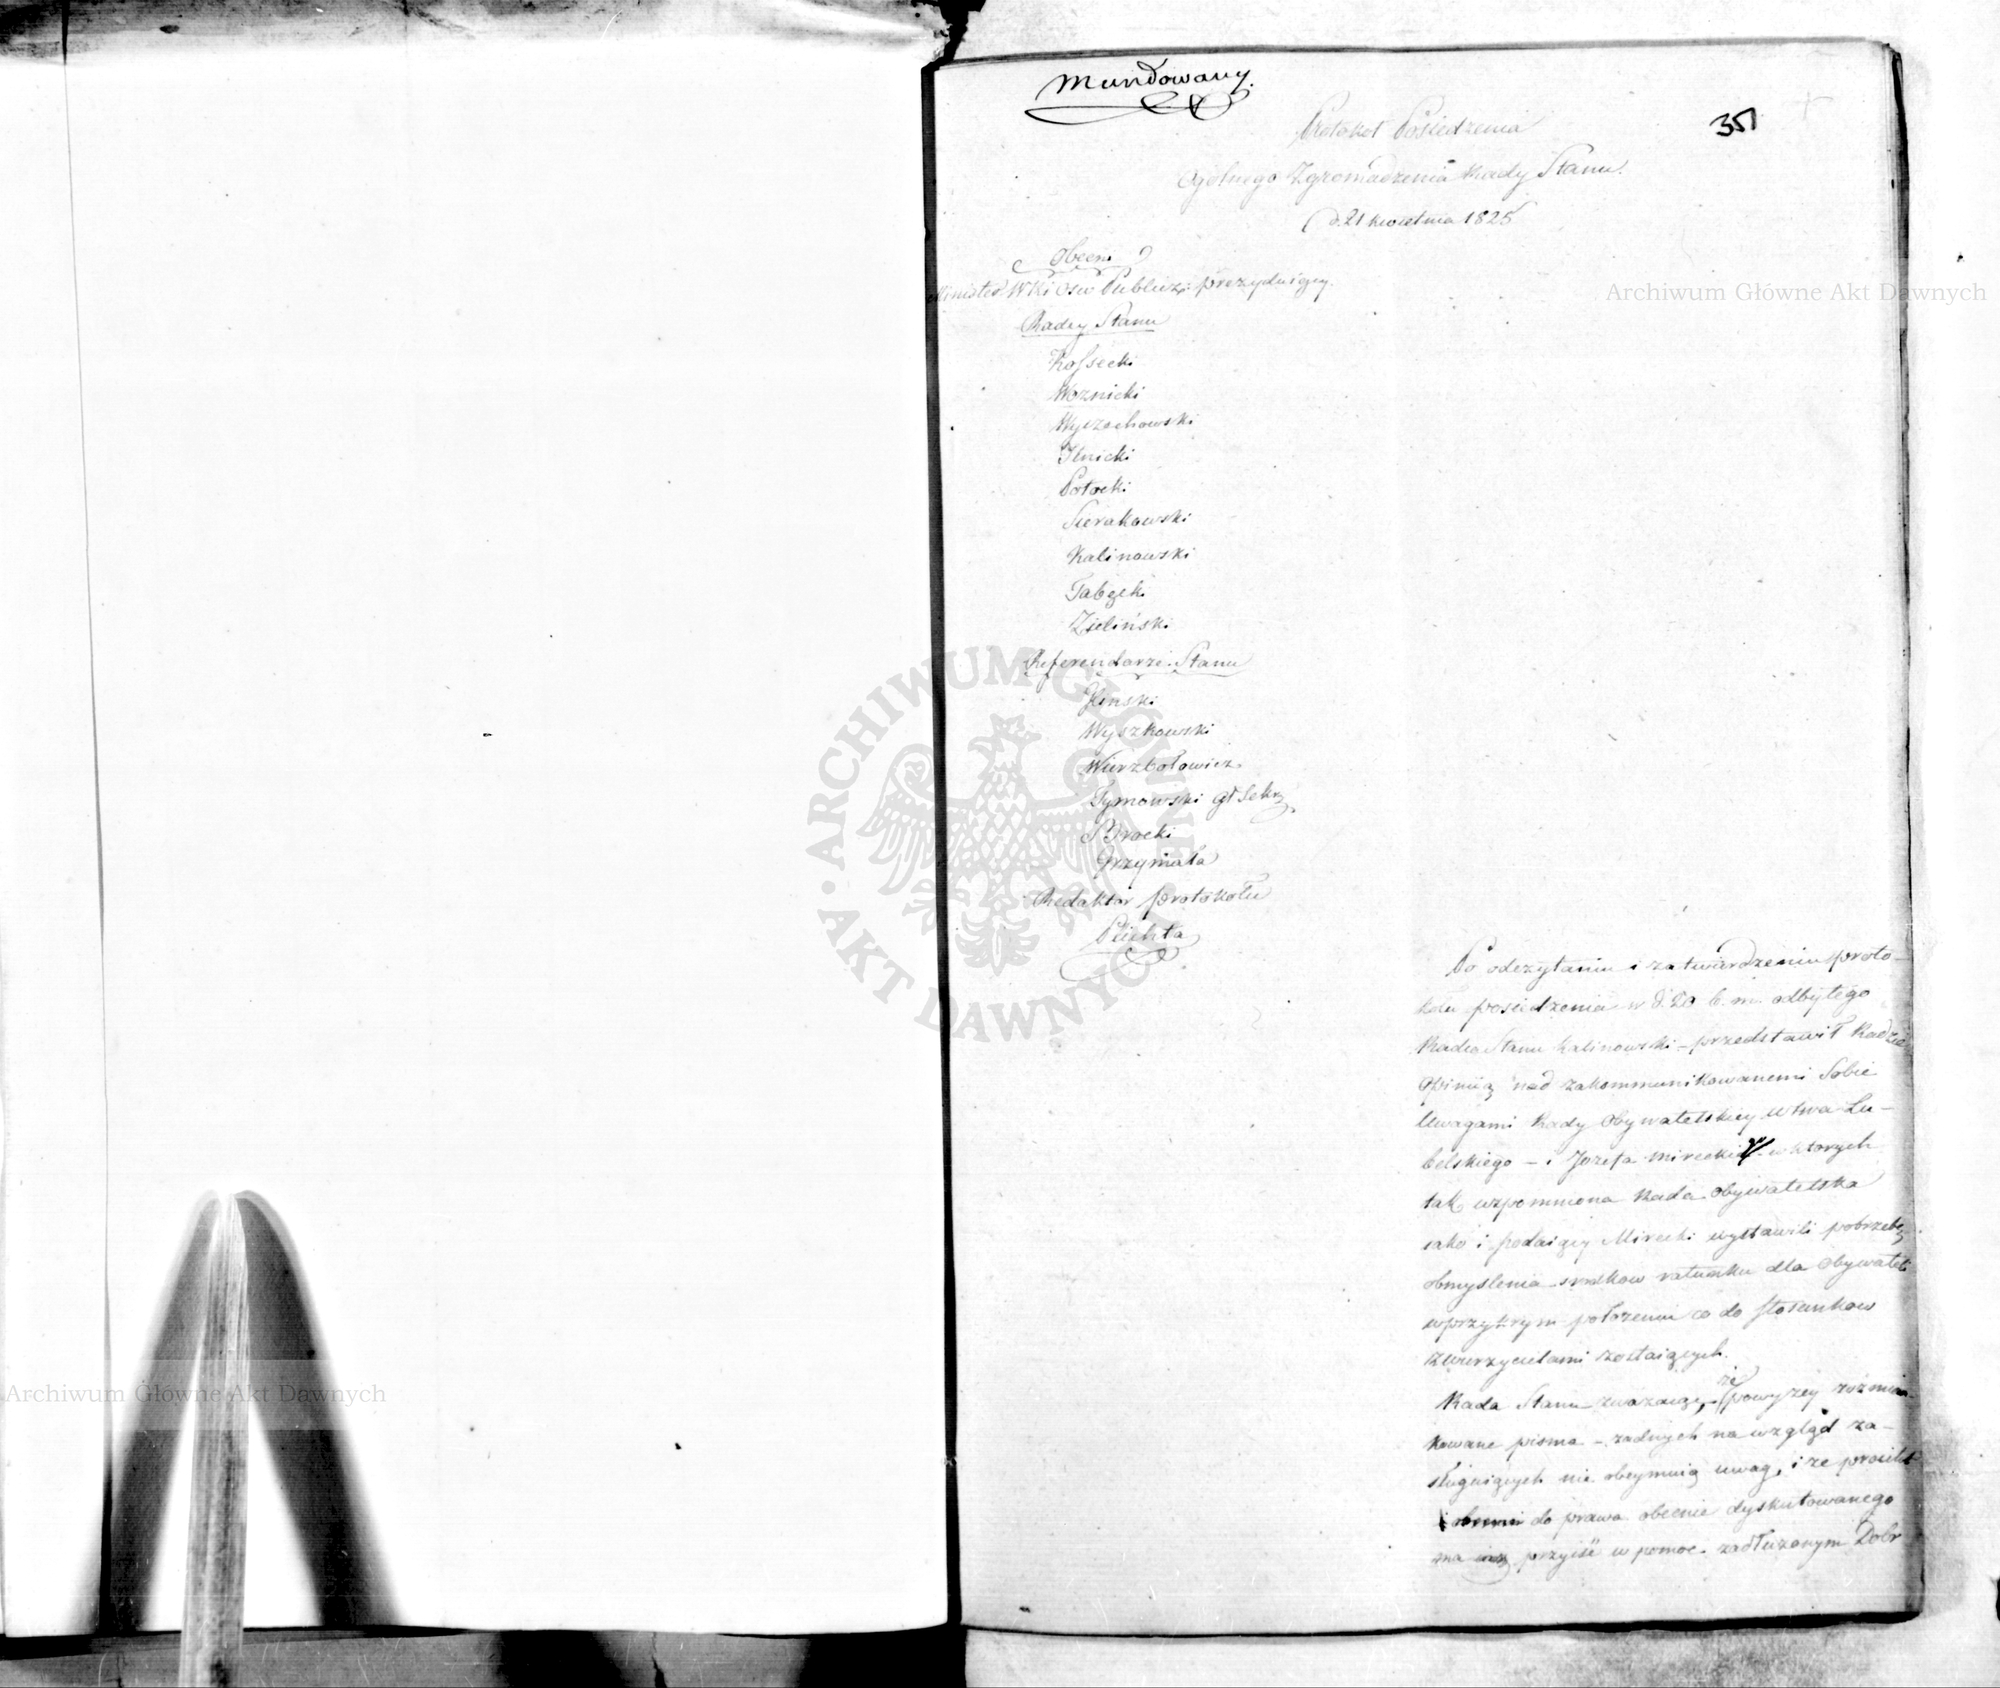 Mundowany.
351
Protokoł Posiedzenia
Ogolnego Zgromadzenia Rady Stanu.
d. 21 kwietnia 1825
Obecni
Minister WR i Osw Publicz: prezyduiący.
Radcy Stanu
Kossecki
Woznicki
Wyczechowski
Ilnicki
Potocki
Sierakowski
Kalinowski
Tabęcki
Zieliński
Referendarze Stanu
Gliński
Wyszkowski
Wierzbołowicz
Tymowski Gł Sekr
Brocki
Grzymała
Redaktor protokołu
Plichta
Po odczytaniu i zatwierdzeniu proto-
kołu posiedzenia w d. 20 b. m. odbytego
Radca Stanu Kalinowski – przedstawił Radzie
opinią nad zakommunikowanemi Sobie
Uwagami Rady Obywatelskiey Wtwa Lu-
belskiego – i Jozefa Mireckie w ktorych
tak wspomniona Rada Obywatelska
iako i podaiący Mirecki wystawili potrzebę
obmyslenia srodkow ratunku dla Obywateli
w przykrym położeniu co do stosunkow
z wierzycielami zostaiących.
Rada Stanu zważaiąc, że powyżey rozmia-
kowane pisma – żadnych na wzgląd za-
sługuiących nie obeymuią uwag, i że proiekt
do prawa obecnie dyskutowanego
ma przyiść w pomoc zadłużonym Dobr
Archiwum Główne Akt Dawnych
Archiwum Główne Akt Dawnych
ARCHIWUM GŁÓWNE AKT DAWNYCH